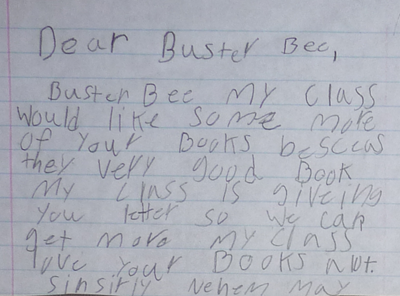 Dear Buster Bee,
Buster Bee my class
would like some more
of your Books besccas
they very good Book
my class is giveing
you letter so we can
get more my class
love your Books alot.
sinsirly Nehem may